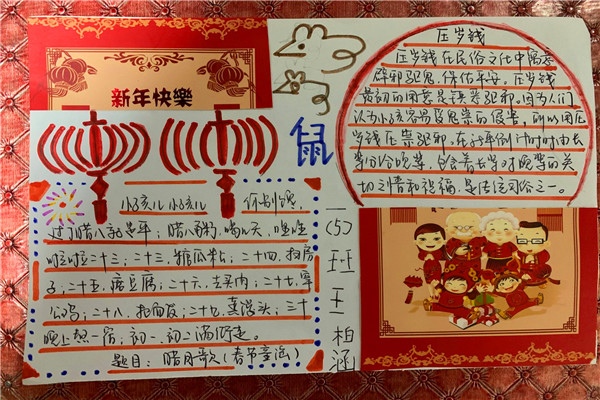 新年快樂
鼠
压岁钱
压岁钱在民俗文化中寓意
辟邪驱鬼,保佑平安。压岁钱
最初的用意是镇恶驱邪。因为人们
认为小孩容易受鬼祟的侵害,所以用压
岁钱压祟驱邪。在新年倒计时时由长
辈分给晚辈,包含着长辈对晚辈的关
切之情和祝福,是传统习俗之一。
小孩儿小孩儿 你别馋,
过了腊八就是年;腊八粥,喝几天,哩哩
啦啦二十三;二十三,糖瓜粘;二十四,扫房
子;二十五,磨豆腐;二十六,去买肉;二十七,宰
公鸡;二十八,把面发;二十九,蒸馒头;三十
晚上熬一宿;初一、初二满街走。
题目:腊月歌(春节童谣)
一(5)班王柏涵